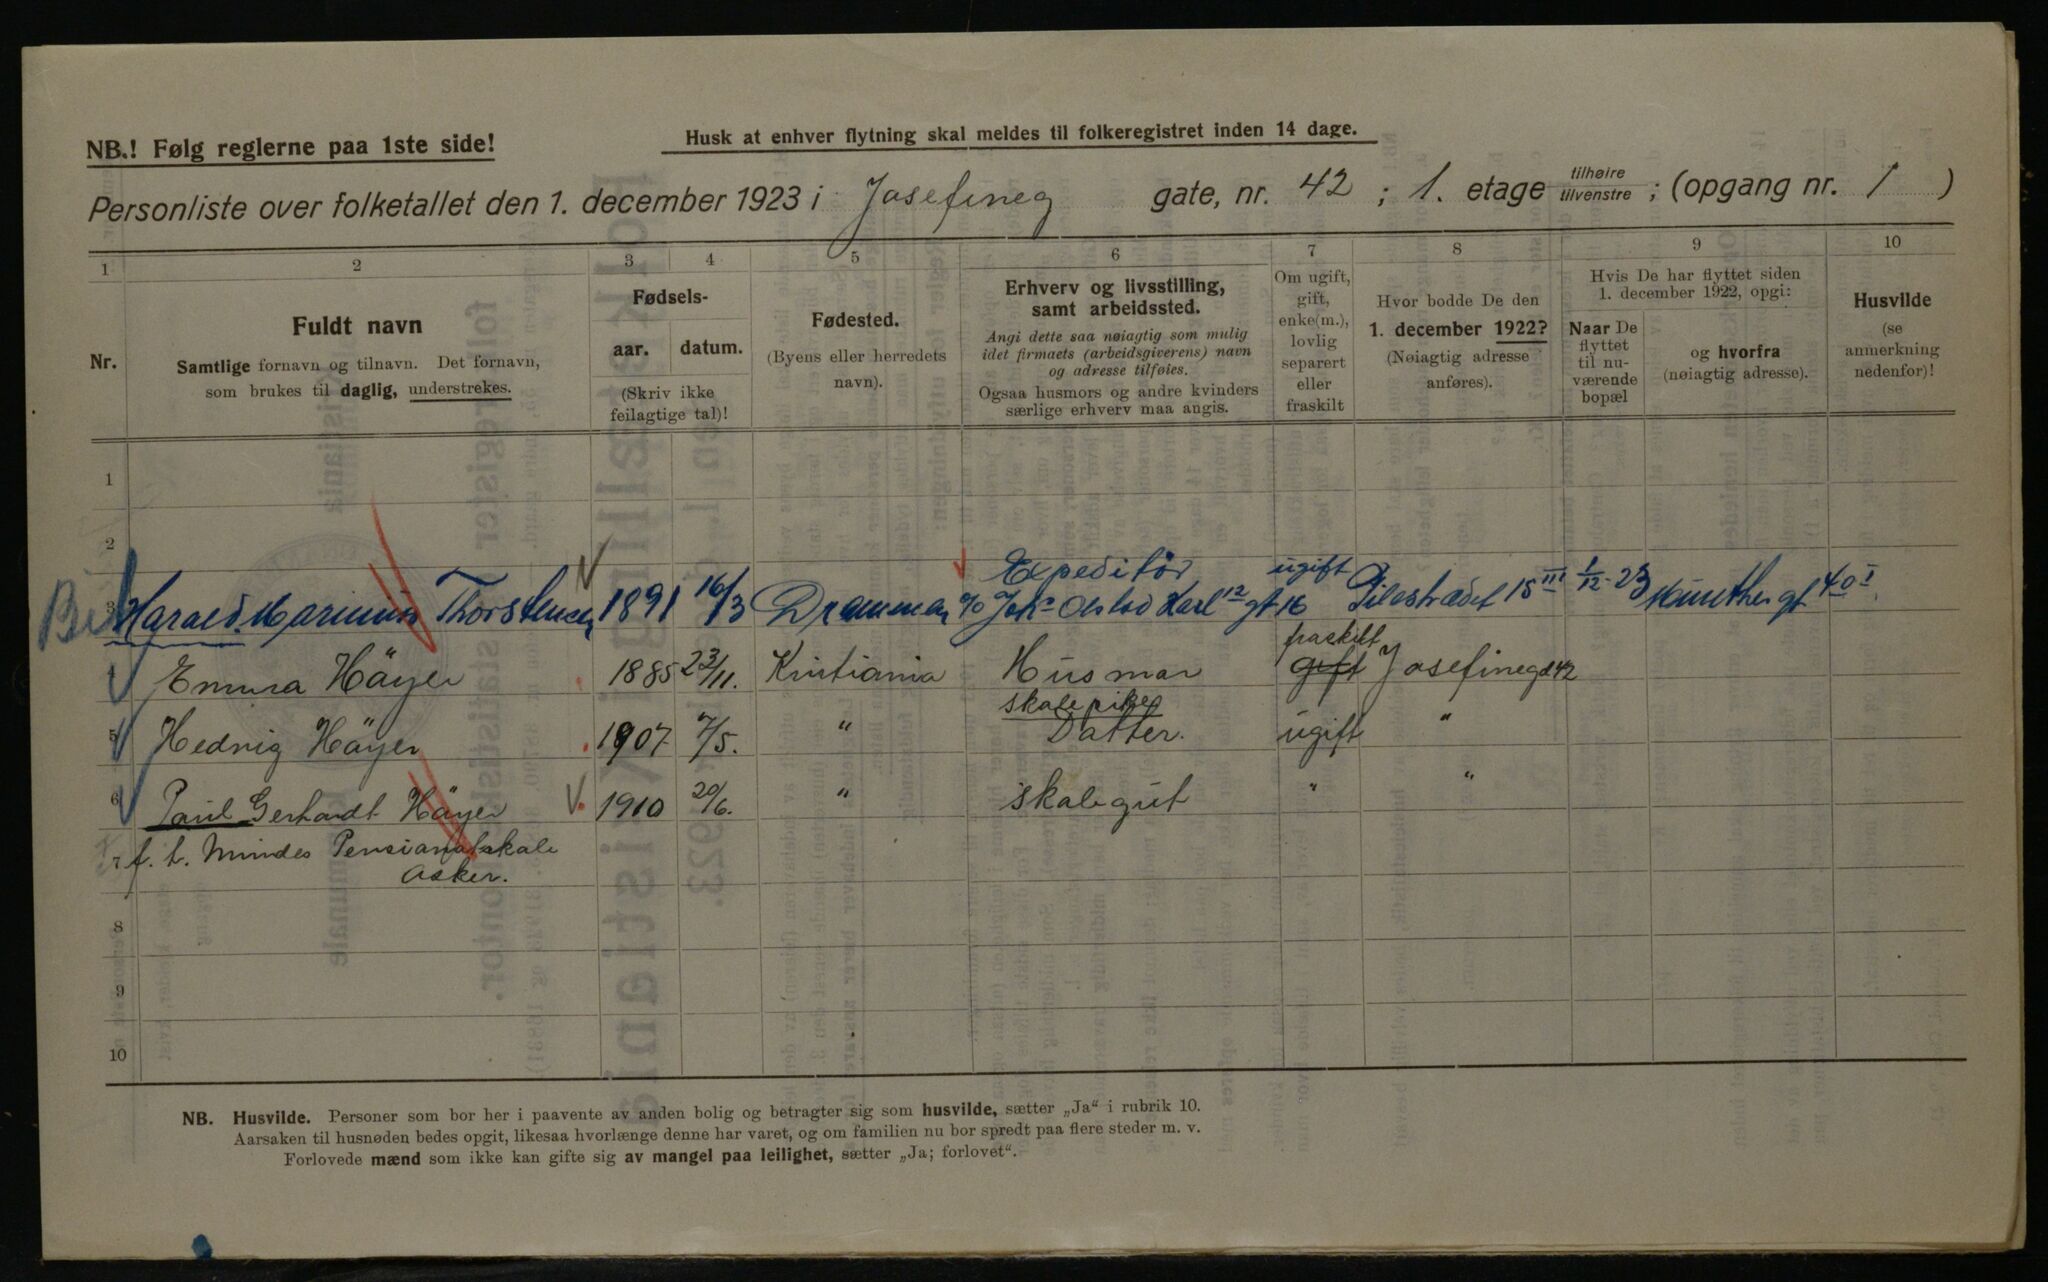 NB.! Følg reglerne paa 1ste side!
Husk at enhver flytning skal meldes til folkeregistret inden 14 dage.
Personliste over folketallet den 1. december 1923 i Josefineg gate, nr. 42 ; 1. etage tilhøire tilvenstre ; (opgang nr. 1 )
1 2 3 4 5 6 7 8 9 10
Nr.
Fuldt navn
Samtlige fornavn og tilnavn. Det fornavn,
som brukes til daglig, understrekes.
Fødsels-
aar. datum.
(Skriv ikke
feilagtige tal)!
Fødested.
(Byens eller herredets
navn).
Erhverv og livsstilling,
samt arbeidssted.
Angi dette saa nøiagtig som mulig
idet firmaets (arbeidsgiverens) navn
og adresse tilføies.
Ogsaa husmors og andre kvinders
særlige erhverv maa angis.
Om ugift,
gift,
enke(m.),
lovlig
separert
eller
fraskilt
Hvor bodde De den
1. december 1922?
(Nøiagtig adresse
anføres).
Hvis De har flyttet siden
1. december 1922, opgi:
Naar De
flyttet
til nu-
værende
bopæl
og hvorfra
(nøiagtig adresse).
Husvilde
(se
anmerkning
nedenfor)!
1
2
Expeditør
3 Harald Marinius Thorstensen 1891 16/3 Drammen Karl 12 gt 16 ugift Pilestrædet 15 III 1/12-23 Munthes gt 40 I
fraskilt
Emma Häyer 1885 23/11. Kristiania Husmor gift Josefinegd 42
skolepike
5 Hedvig Häyer 1907 7/5. " Datter. ugift "
6 Paul Gerhardt Häyer 1910 20/6. " skolegut " "
f. t. Mindes Pensionatskole
Asker.
8
9
10
NB. Husvilde. Personer som bor her i paavente av anden bolig og betragter sig som husvilde, sætter „Ja“ i rubrik 10.
Aarsaken til husnøden bedes opgit, likesaa hvorlænge denne har varet, og om familien nu bor spredt paa flere steder m. v.
Forlovede mænd som ikke kan gifte sig av mangel paa leilighet, sætter „Ja; forlovet“.